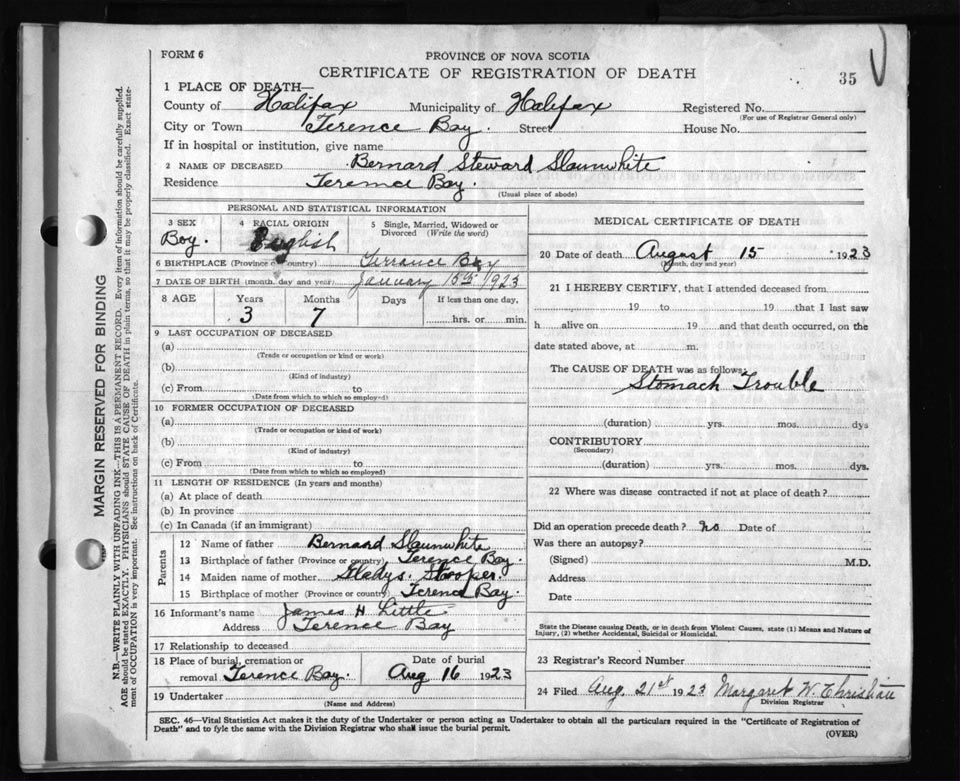 FORM 6
PROVINCE OF NOVA SCOTIA
CERTIFICATE OF REGISTRATION OF DEATH
35
1 PLACE OF DEATH—
County of Halifax Municipality of Halifax Registered No.
(For use of Registrar General only)
City or Town Terence Bay. Street House No.
If in hospital or institution, give name
2 NAME OF DECEASED Bernard Steward Slaunwhite
Residence Terence Bay.
(Usual place of abode)
PERSONAL AND STATISTICAL INFORMATION
3 SEX Boy.
4 RACIAL ORIGIN English
5 Single, Married, Widowed or Divorced (Write the word)
6 BIRTHPLACE (Province or Country) Terrance Bay
7 DATE OF BIRTH (month, day and year) January 15th 1923
8 AGE Years Months Days If less than one day,
3 7 hrs. or min.
9 LAST OCCUPATION OF DECEASED
(a)
(Trade or occupation or kind or work)
(b)
(Kind of industry)
(c) From to
(Date from which to which so employed)
10 FORMER OCCUPATION OF DECEASED
(a)
(Trade or occupation or kind of work)
(b)
(Kind of industry)
(c) From to
(Date from which to which so employed)
11 LENGTH OF RESIDENCE (In years and months)
(a) At place of death
(b) In province
(c) In Canada (if an immigrant)
Parents
12 Name of father Bernard Slaunwhite
13 Birthplace of father (Province or country) Terence Bay.
14 Maiden name of mother Gladys. Stooper.
15 Birthplace of mother (Province or country) Terence Bay.
16 Informant's name James H Little
Address Terence Bay
17 Relationship to deceased
18 Place of burial, cremation or removal Terence Bay. Date of burial Aug 16 1923
19 Undertaker
(Name and Address)
MEDICAL CERTIFICATE OF DEATH
20 Date of death August 15 1923
(Month, day and year)
21 I HEREBY CERTIFY, that I attended deceased from
19 to 19 that I last saw
h alive on 19 and that death occurred, on the
date stated above, at m.
The CAUSE OF DEATH was as follows:
Stomach Trouble
(duration) yrs. mos. dys
CONTRIBUTORY
(Secondary)
(duration) yrs. mos. dys.
22 Where was disease contracted if not at place of death?
Did an operation precede death? no Date of
Was there an autopsy?
(Signed) M.D.
Address
Date
State the Disease causing Death, or in death from Violent Causes, state (1) Means and Nature of
Injury, (2) whether Accidental, Suicidal or Homicidal.
23 Registrar's Record Number
24 Filed Aug. 21st 1923 Margaret W. Christian
Division Registrar
SEC. 46—Vital Statistics Act makes it the duty of the Undertaker or person acting as Undertaker to obtain all the particulars required in the "Certificate of Registration of
Death" and to fyle the same with the Division Registrar who shall issue the burial permit.
(OVER)
MARGIN RESERVED FOR BINDING
N.B.—WRITE PLAINLY WITH UNFADING INK—THIS IS A PERMANENT RECORD. Every item of information should be carefully supplied.
AGE should be stated EXACTLY. PHYSICIANS should STATE CAUSE OF DEATH in plain terms, so that it may be properly classified. Exact statement of OCCUPATION is very important. See instructions on back of Certificate.